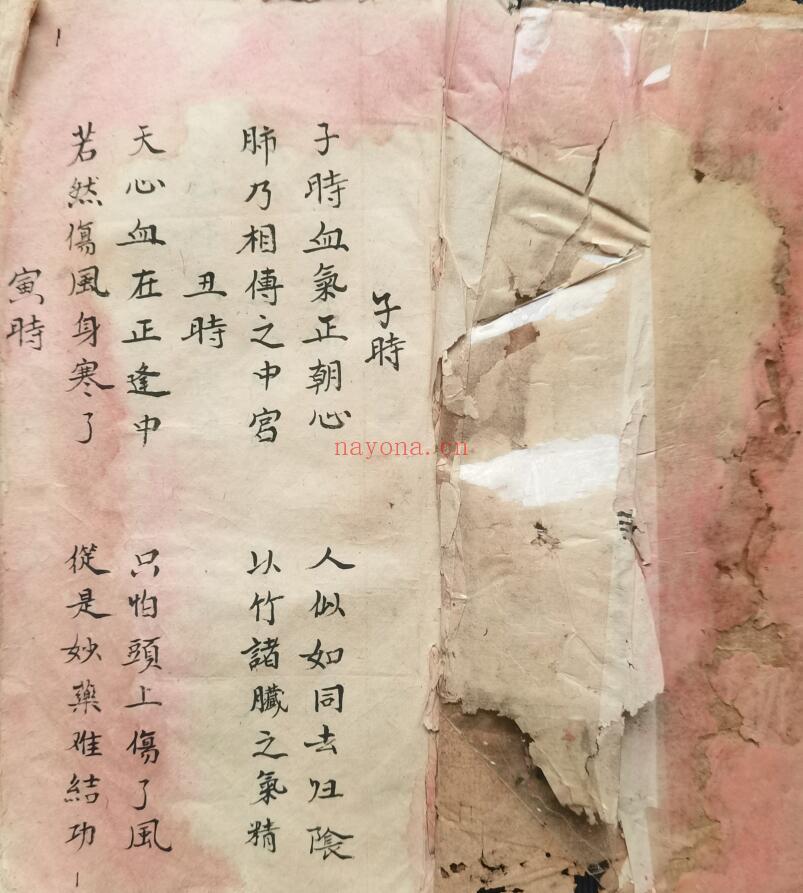 子時
子時血氣正朝心
人似如同去归陰
肺乃相傳之中宮
以竹諸臟之氣精
丑時
天心血在正逢中
只怕頭上傷了風
若然傷風身寒了
從是妙藥难結功
寅時
nayona.cn